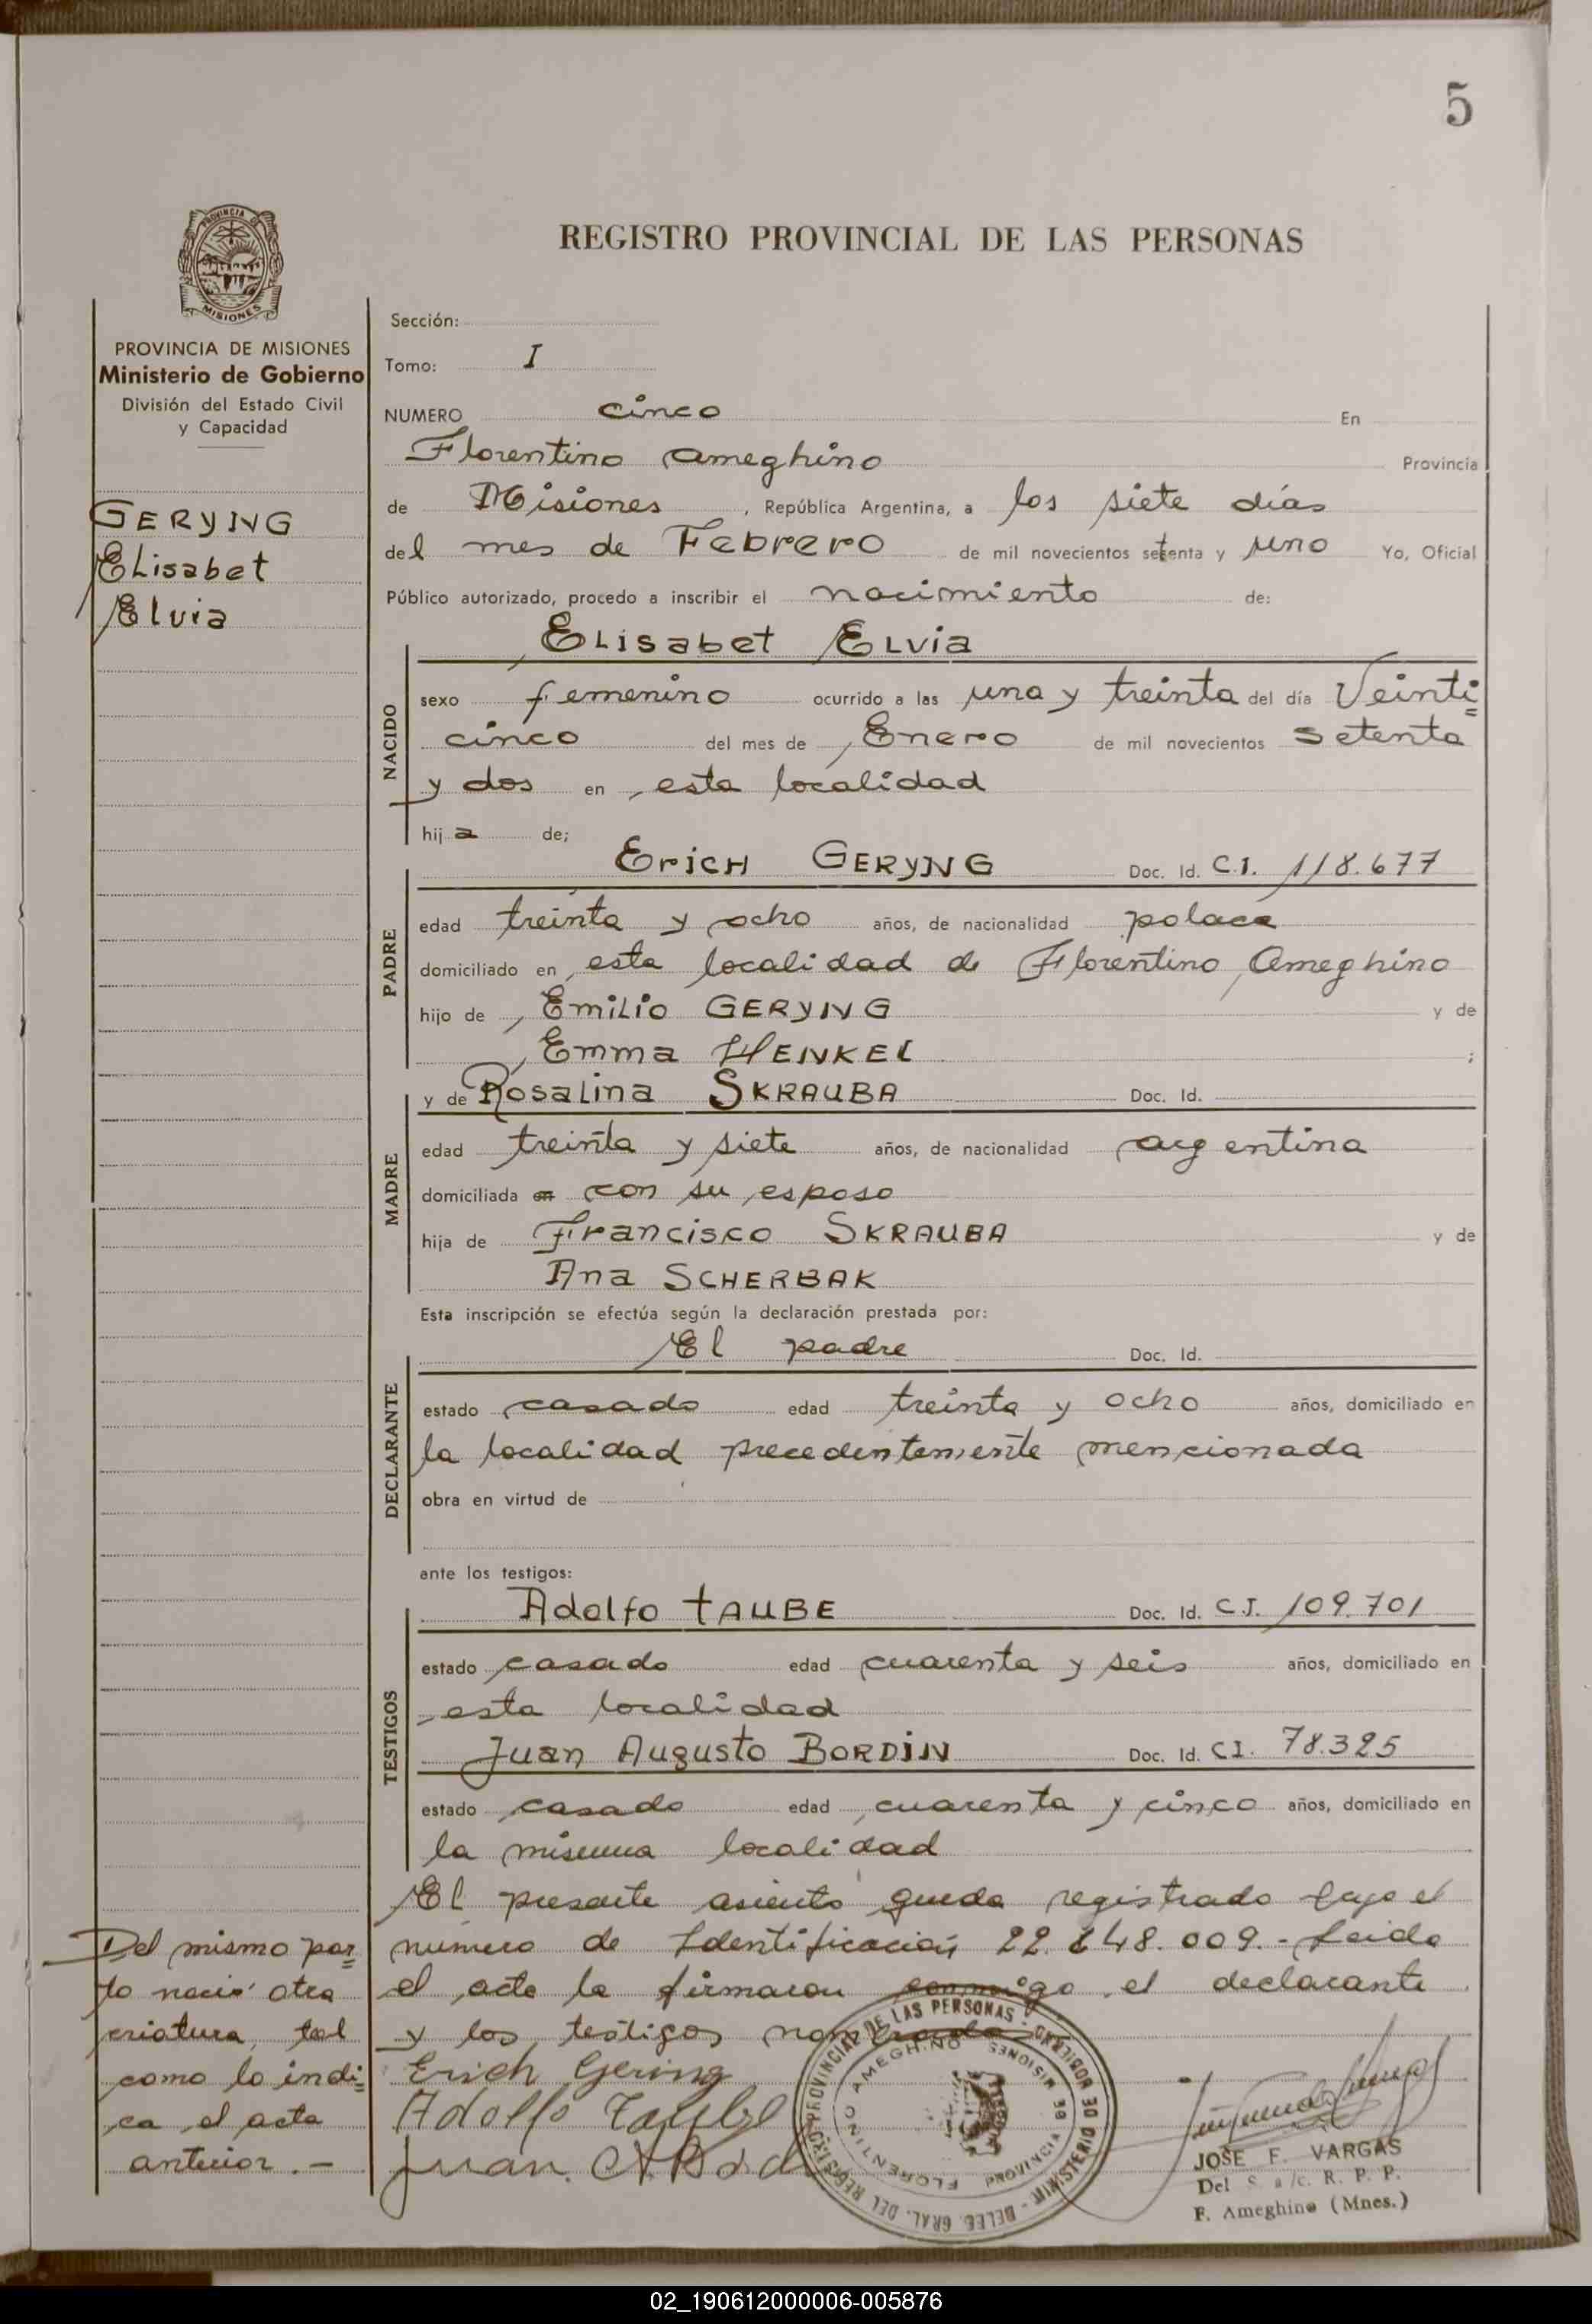 5
REGISTRO PROVINCIAL DE LAS PERSONAS
PROVINCIA DE MISIONES
PROVINCIA DE MISIONES
Ministerio de Gobierno
División del Estado Civil
y Capacidad
GERYNG
Elisabet
Elvia
Sección:
Tomo: I
NUMERO cinco En
Florentino Ameghino Provincia
de Misiones, República Argentina, a los siete días
del mes de Febrero de mil novecientos setenta y uno Yo, Oficial
Público autorizado, procedo a inscribir el nacimiento de:
Elisabet Elvia
NACIDO
sexo femenino ocurrido a las una y treinta del día Veinti=
cinco del mes de Enero de mil novecientos setenta
y dos en esta localidad
hija de;
Erich GERYNG Doc. Id. C.I. 118.677
PADRE
edad treinta y ocho años, de nacionalidad polaca
domiciliado en esta localidad de Florentino Ameghino
hijo de Emilio GERYNG y de
Emma HENKEL ;
y de Rosalina SKRAUBA Doc. Id.
MADRE
edad treinta y siete años, de nacionalidad argentina
domiciliada en con su esposo
hija de Francisco SKRAUBA y de
Ana SCHERBAK
Esta inscripción se efectúa según la declaración prestada por:
El padre Doc. Id.
DECLARANTE
estado casado edad treinta y ocho años, domiciliado en
la localidad precedentemente mencionada
obra en virtud de
ante los testigos:
Adolfo TAUBE Doc. Id. C.I. 109.701
TESTIGOS
estado casado edad cuarenta y seis años, domiciliado en
esta localidad
Juan Augusto BORDIN Doc. Id. C.I. 78.325
estado casado edad cuarenta y cinco años, domiciliado en
la misma localidad
El presente asiento queda registrado bajo el
numero de Identificación 22.848.009.- Leida
el acta la firmaron conmigo el declarante
y los testigos nombrados
Del mismo par=
to nació otra
criatura, tal
como lo indi=
ca el acta
anterior.-
Erich Gering
Adolfo Taube
Juan. A. Bord
DELEG. GRAL. DEL REGISTRO PROVINCIAL DE LAS PERSONAS - MINISTERIO DE GOBIERNO
FLORENTINO AMEGHINO PROVINCIA DE MISIONES
JOSE F. VARGAS
Del S. a/c. R. P. P.
F. Ameghino (Mnes.)
02_190612000006-005876